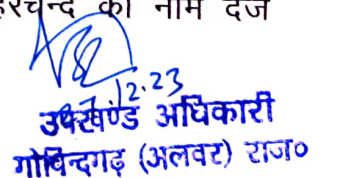 हरचन्द का नाम दर्ज
12.23
उपखण्ड अधिकारी
गोबिन्दगढ़ (अलवर) राज०